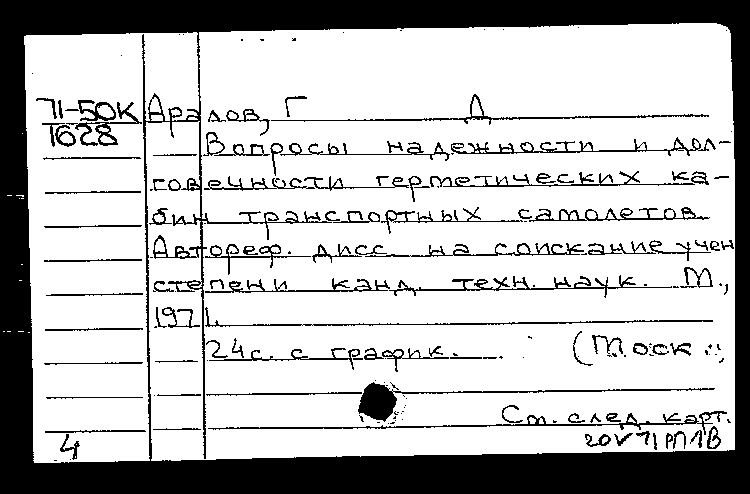 71-50К Аралов, Г Д
1628 Вопросы надежности и дол-
говечности герметических ка-
бин транспортных самолетов.
Автореф. дисс. на соискание учен
степени канд. техн. наук. М.,
1971.
24с. с график. (Моск.;
См. след. карт.
4